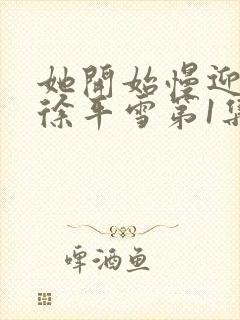 她開始慢迎
徐平雪第1集
啤酒鱼